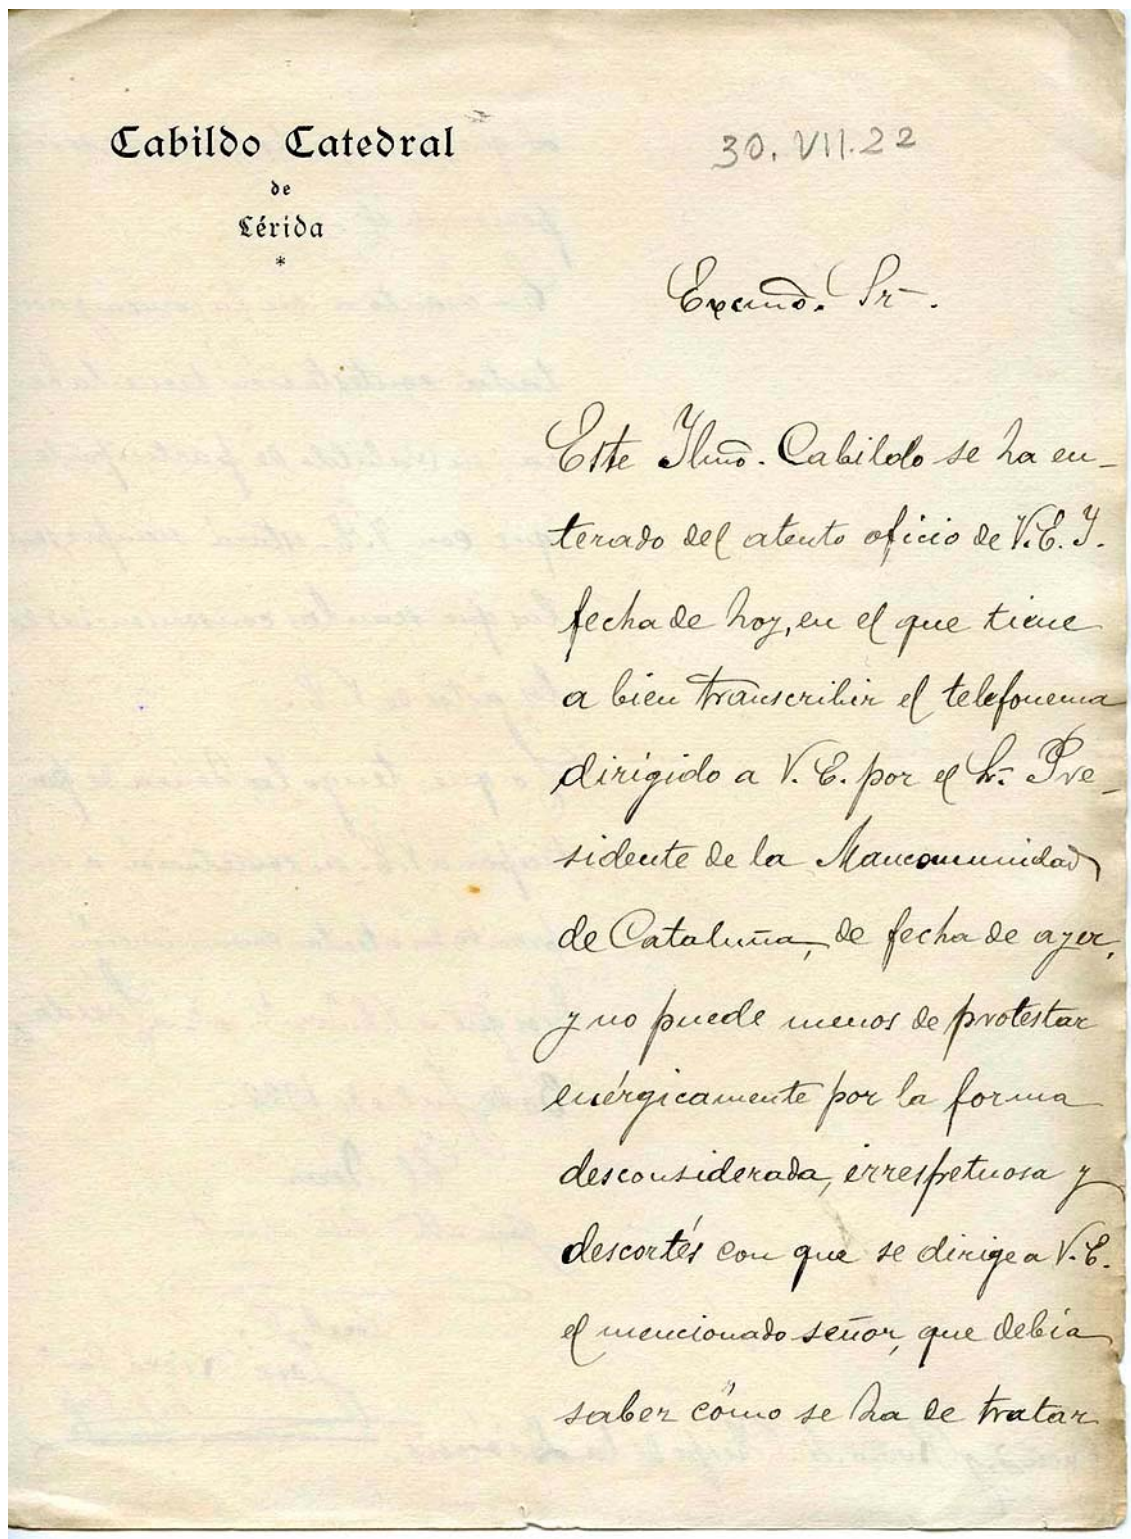 Cabildo Catedral
de
Lérida
*
30. VII. 22
Excmõ. Sr.
Este Ilmõ. Cabildo se ha en-
terado del atento oficio de V. E. I.
fecha de hoy, en el que tiene
a bien transcribir el telefonema
dirigido a V. E. por el Sr. Pre-
sidente de la Mancomunidad
de Cataluña, de fecha de ayer,
y no puede menos de protestar
enérgicamente por la forma
desconsiderada, irrespetuosa y
descortés con que se dirige a V. E.
el mencionado señor, que debía
saber cómo se ha de tratar